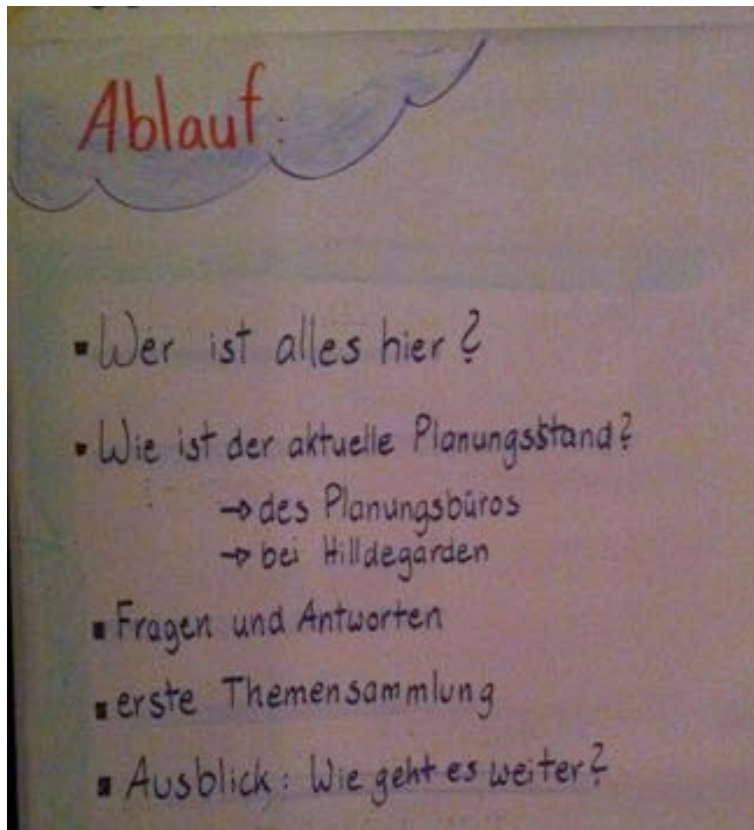 Ablauf:
▪ Wer ist alles hier?
▪ Wie ist der aktuelle Planungsstand?
→ des Planungsbüros
→ bei Hilldegarden
▪ Fragen und Antworten
▪ erste Themensammlung
▪ Ausblick: Wie geht es weiter?